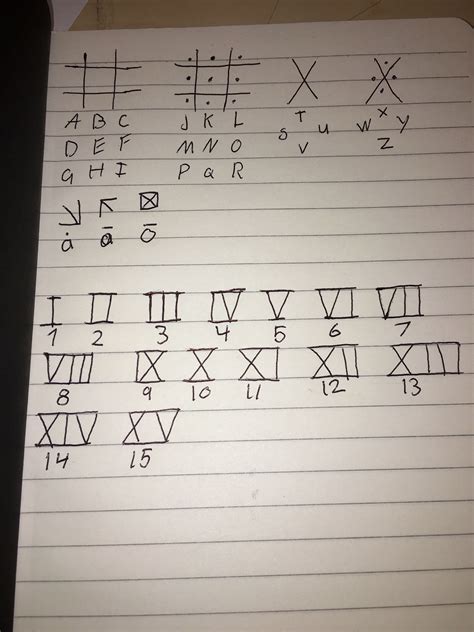 A B C J K L S T U W X Y
D E F M N O V Z
G H I P Q R
ȧ ā ō
I II III IV V VI VII
1 2 3 4 5 6 7
VIII IX X XI XII XIII
8 9 10 11 12 13
XIV XV
14 15